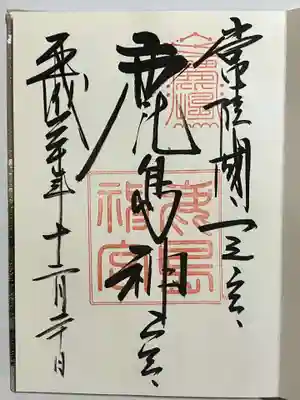 常陸国一之宮
鹿島神宮
鹿島神宮
平成年十二月日